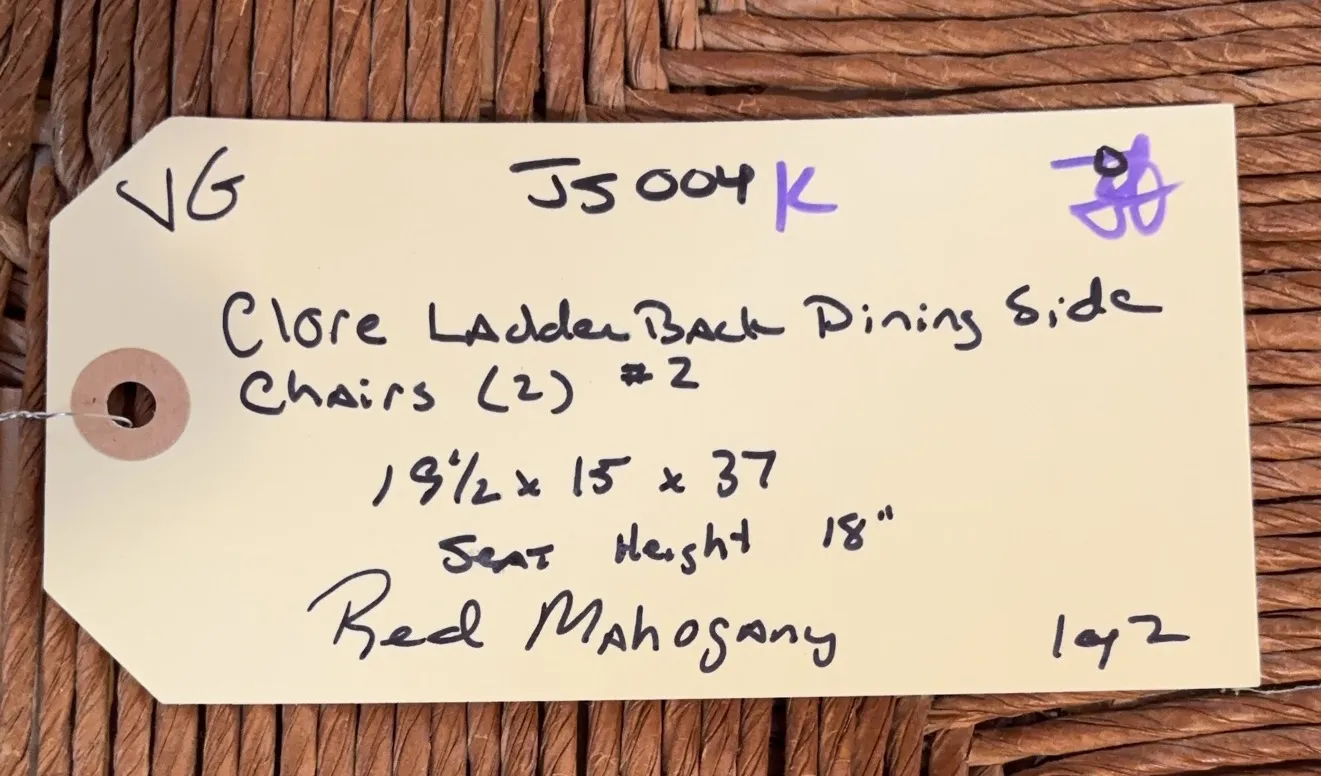 VG JS004K
Clore Ladder Back Dining Side
Chairs (2) #2
19½ x 15 x 37
Seat Height 18"
Red Mahogany 1 of 2